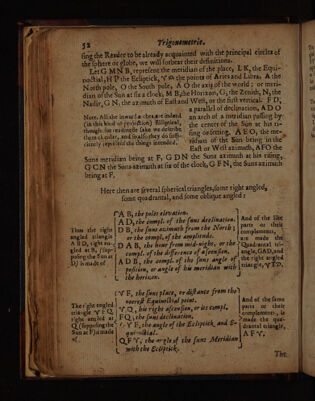 52 Trigonometrie.
sing the Reader to be already acquainted with the principal circles of
the sphere or globe, we will forbear their definitions.
Let G M N B, represent the meridian of the place, L K, the Equi-
noctial, H P the Ecliptick, ♈ ♎ the points of Aries and Libra. A the
North pole, O the South pole, A O the axis of the world : or meri-
dian of the Sun at six a clock, M B, the Horizon, G, the Zenith, N, the
Nadir, G N, the azimuth of East and West, or the first vertical. F D,
a parallel of declination, A D O
an arch of a meridian passing by
the center of the Sun at his ri-
sing or setting. A E O, the me-
ridian of the Sun being in the
East or West azimuth, A F O the
Note. All the inward arches are
(in this kind of projection) Elliptical,
though for readiness sake we describe
them circular, and so also they do suffi-
ciently represent the things intended.
Suns meridian being at F, G D N the Suns azimuth at his rising,
G C N the Suns azimuth at six of the clock, G F N, the Suns azimuth
being at F.
Here then are several spherical triangles, some right angled,
some quadrantal, and some oblique angled :
Thus the right
angled triangle
A B D, right an-
gled at B, (supp-
posing the Sun at
D) is made of
A B, the poles elevation.
A D, the compl. of the suns declination.
D B, the suns azimuth from the North;
or the compl. of the amplitude.
D A B, the hour from mid-night, or the
compl. of the difference of ascension.
A D B, the compl. of the suns angle of
position, or angle of his meridian with
the horizon.
And of the like
parts or their
complements,
are made the
Quadrantal tri-
angle, G A D, and
the right angled
triangle,
The right angled
triangle ♈ F Q
right angled at
Q (supposing the
Sun at F) is made
of
♈ F, the suns place, or distance from the
nearest Equinoctial point.
♈ Q, his right ascension, or its compl.
F Q, the suns declination.
F ♈, the angle of the Ecliptick and E-
quinoctial.
Q F ♈, the angle of the Suns Meridian
with the Ecliptick.
And of the same
parts or their
complements, is
made the qua-
drantal triangle,
A F ♈,
The